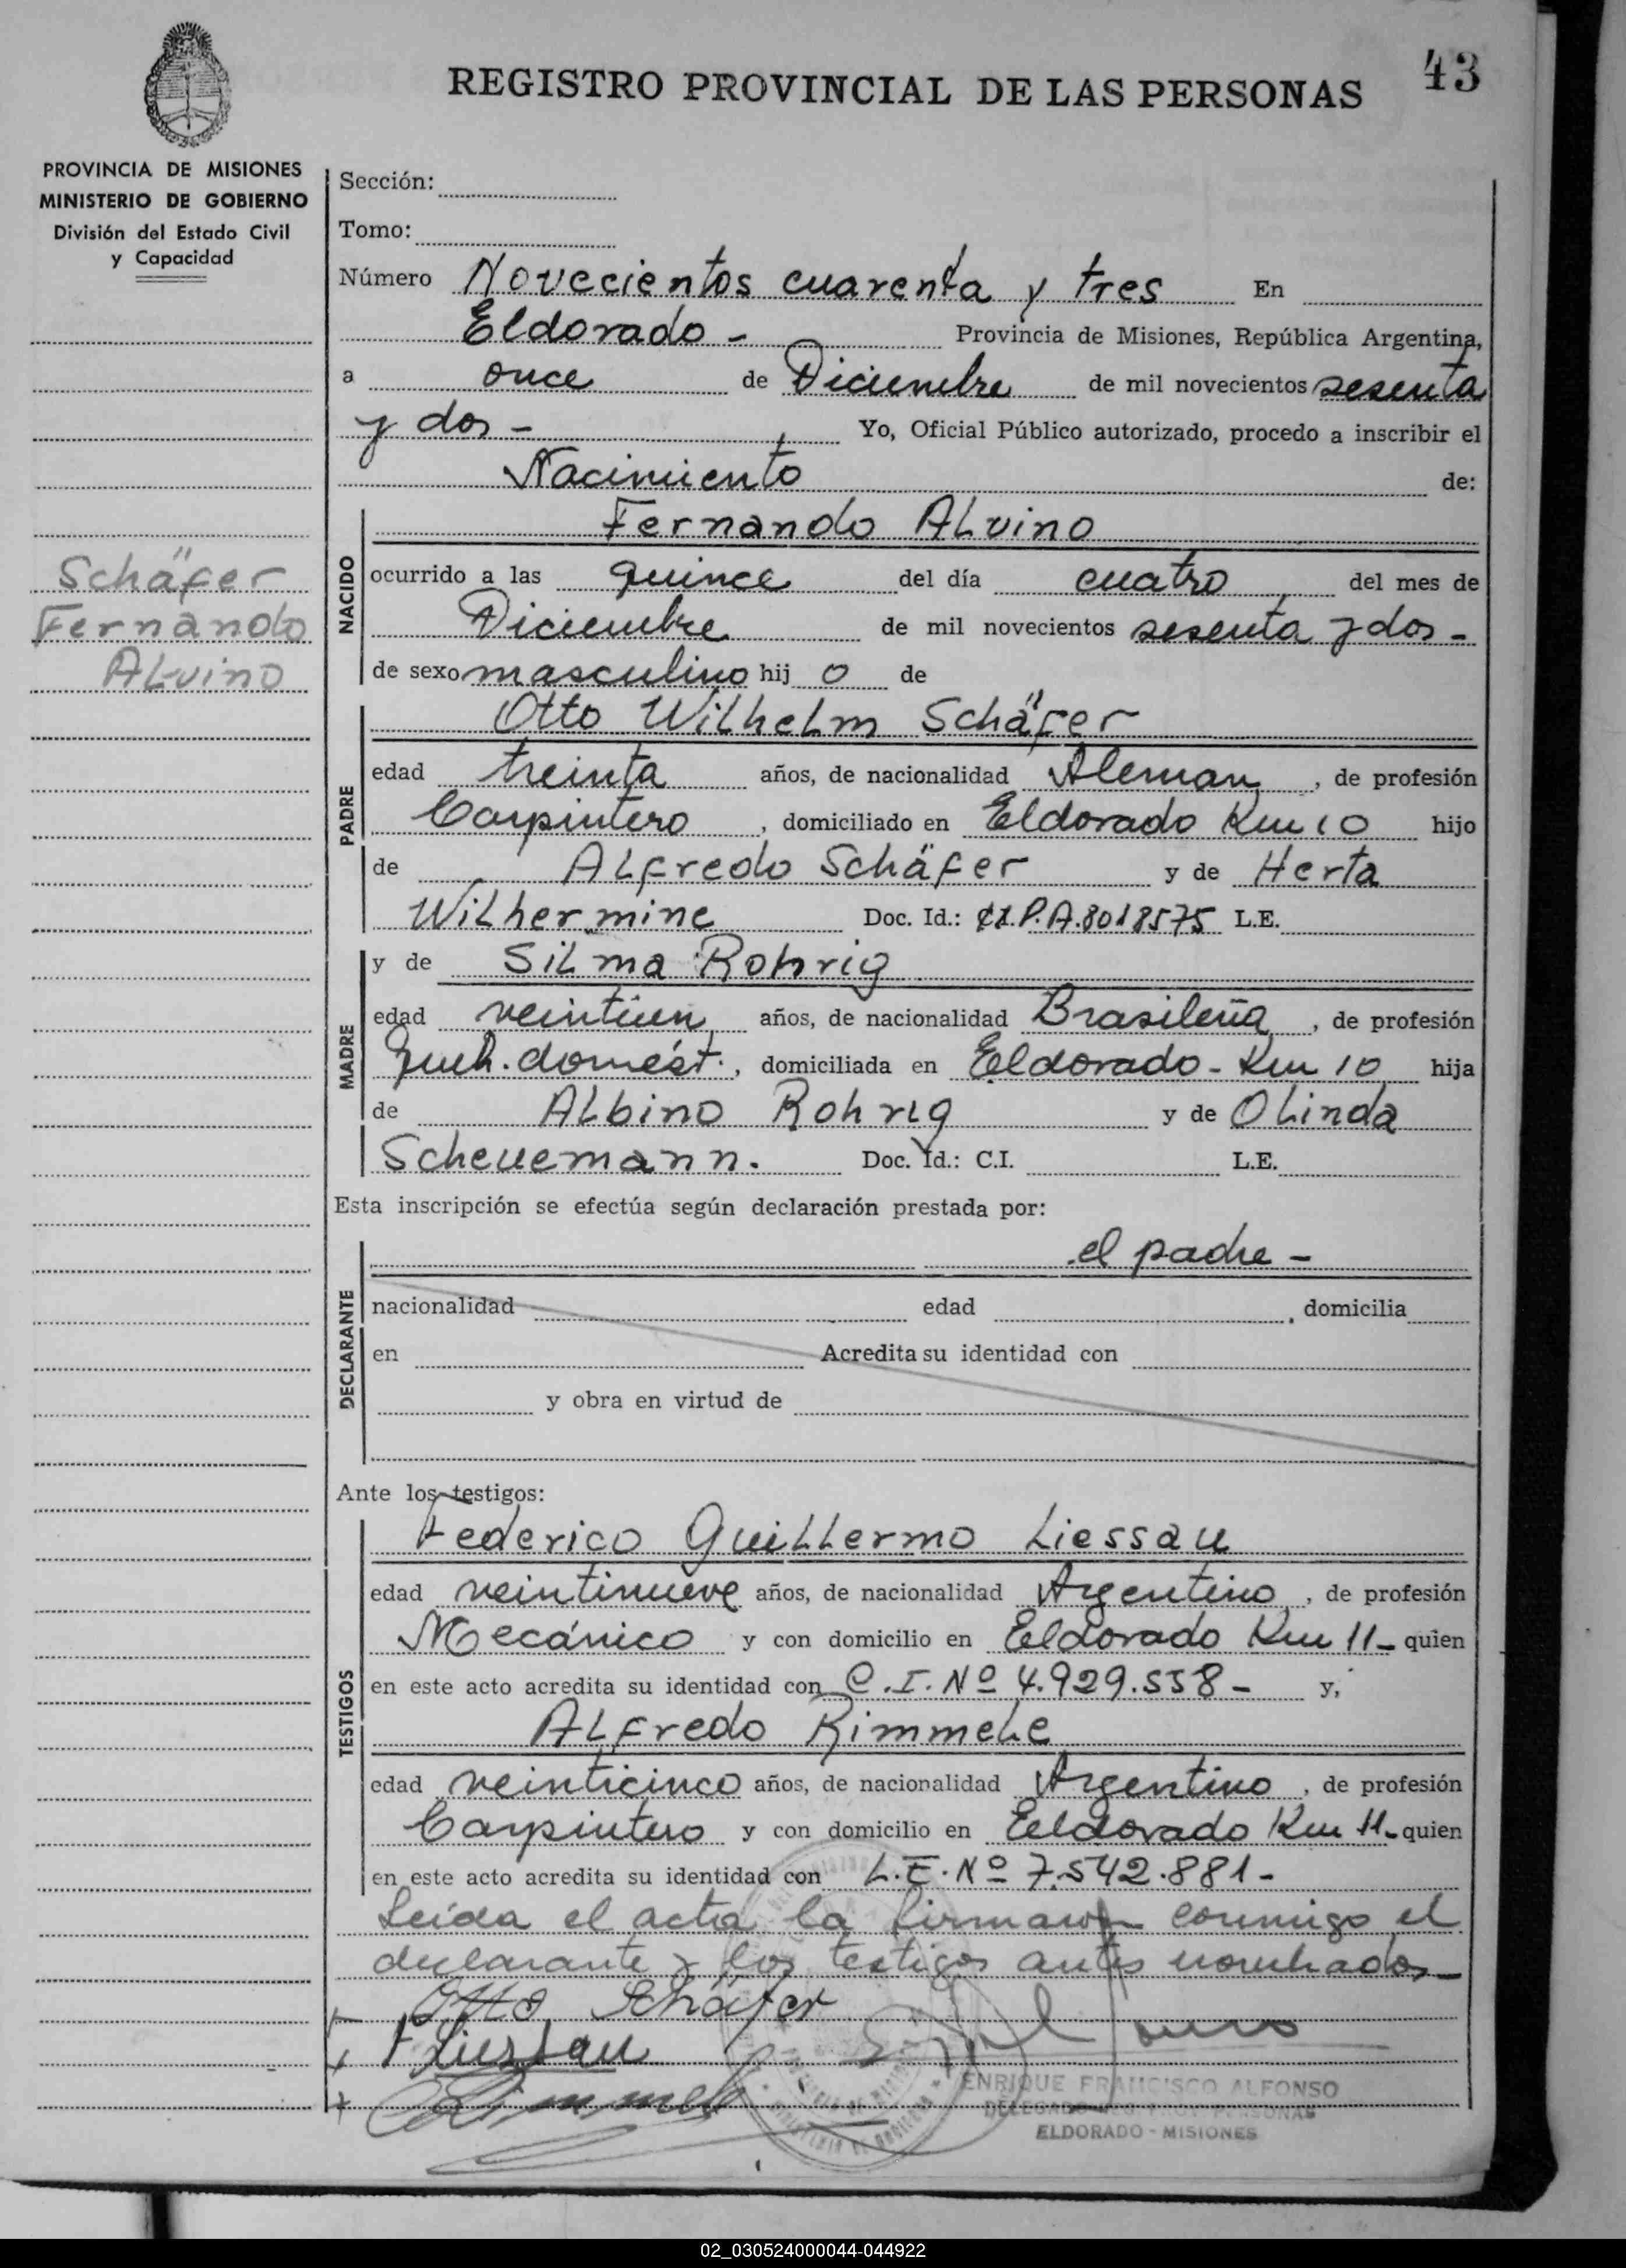 43
REGISTRO PROVINCIAL DE LAS PERSONAS
PROVINCIA DE MISIONES
MINISTERIO DE GOBIERNO
División del Estado Civil
y Capacidad
Schäfer
Fernando
ALvino
Sección:
Tomo:
Número Novecientos cuarenta y tres En
Eldorado - Provincia de Misiones, República Argentina,
a once de Diciembre de mil novecientos sesenta
y dos - Yo, Oficial Público autorizado, procedo a inscribir el
Nacimiento de:
NACIDO
Fernando ALvino
ocurrido a las quince del día cuatro del mes de
Diciembre de mil novecientos sesenta y dos -
de sexo masculino hij o de
PADRE
Otto Wilhelm Schäfer
edad treinta años, de nacionalidad Aleman, de profesión
Carpintero, domiciliado en Eldorado Km 10 hijo
de ALfredo Schäfer y de Herta
Wilhermine Doc. Id.: P.A.8018575 L.E.
MADRE
y de SiLma Rohrig
edad veintiun años, de nacionalidad Brasileña, de profesión
Queh. domést., domiciliada en Eldorado - Km 10 hija
de ALbino Rohrig y de OLinda
Scheuemann. Doc. Id.: C.I. L.E.
Esta inscripción se efectúa según declaración prestada por:
DECLARANTE
el padre -
nacionalidad edad , domicilia
en Acredita su identidad con
y obra en virtud de
Ante los testigos:
TESTIGOS
Federico GuiLLermo Liessau
edad veintinueve años, de nacionalidad Argentino, de profesión
Mecánico y con domicilio en Eldorado Km 11 - quien
en este acto acredita su identidad con C.I. Nº 4.929.558 - y,
ALfredo Rimmele
edad veinticinco años, de nacionalidad Argentino, de profesión
Carpintero y con domicilio en Eldorado Km 11 - quien
en este acto acredita su identidad con L.E. Nº 7.542.881 -
Leída el acta la firmaron conmigo el
declarante y los testigos antes nombrados -
Otto Schäfer
F Liessau
Rimmele
ENRIQUE FRANCISCO ALFONSO
DELEGADO REG. PROV. PERSONAS
ELDORADO - MISIONES
02_030524000044-044922